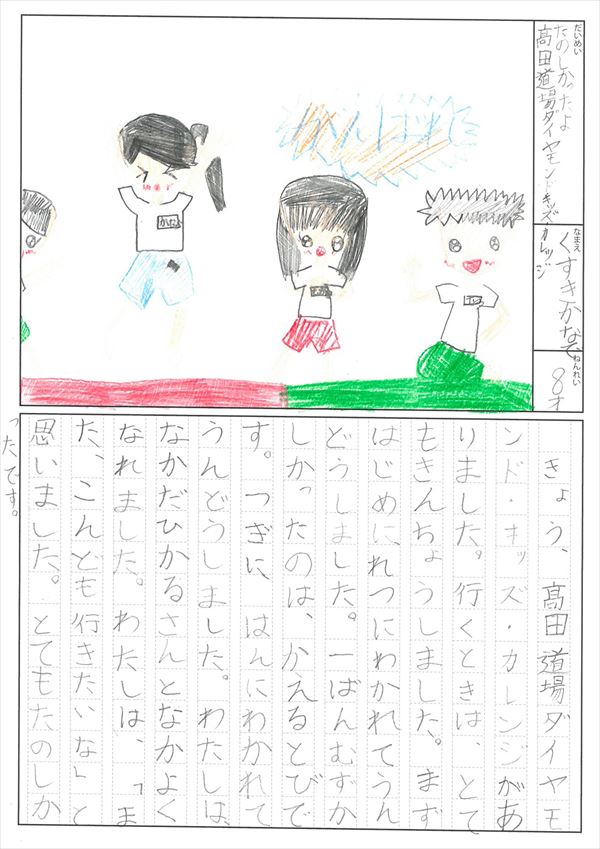 だいめい
たのしかったよ
髙田道場ダイヤモンドキッズ
カレッジ
なまえ
くすきかなで
ねんれい
8才
がんばれ
かなで
きょう、髙田道場ダイヤモ
ンド・キッズ・カレンジがあ
りました。行くときは、とて
もきんちょうしました。まず
はじめに、れつにわかれてうん
どうしました。一ばんむずか
しかったのは、かえるとびで
す。つぎに、はんにわかれて
うんどうしました。わたしは、
なかだひかるさんとなかよく
なれました。わたしは、「ま
た、こんども行きたいな」と
思いました。とてもたのしか
ったです。